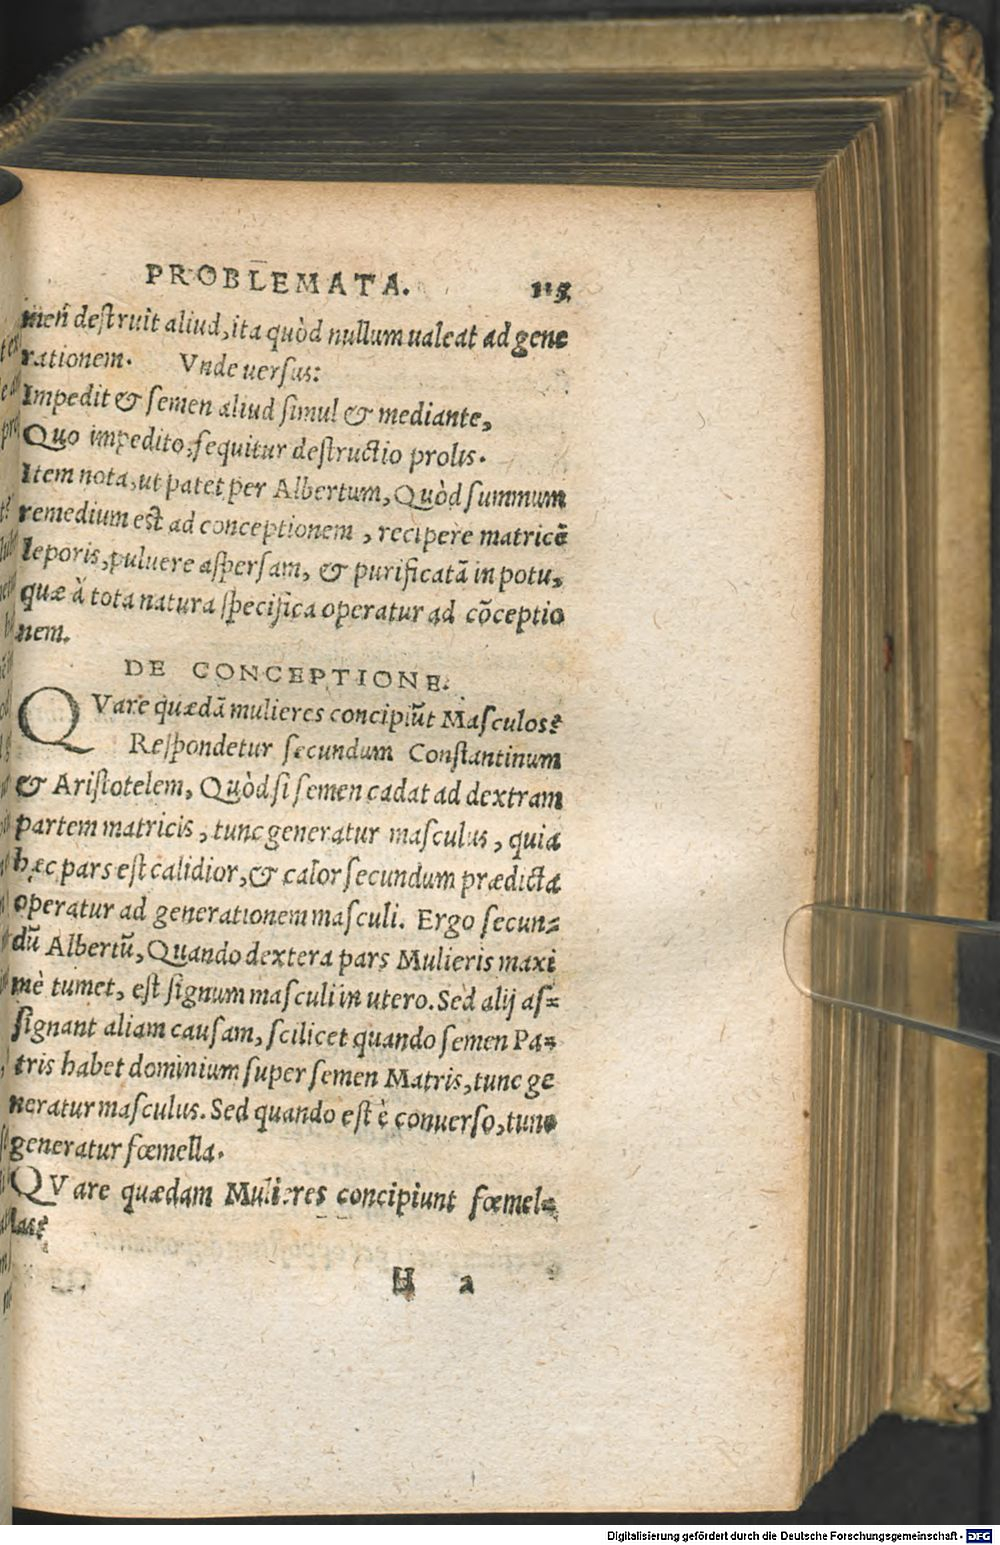 PROBLEMATA. 115
men destruit aliud, ita quòd nullum ualeat ad gene
rationem. Vnde uersus:
Impedit & semen aliud simul & mediante,
Quo impedito, sequitur destructio prolis.
Item nota, ut patet per Albertum, Quòd summum
remedium est ad conceptionem, recipere matricē
leporis, puluere aspersam, & purificatā in potu,
quæ à tota natura specifica operatur ad cōceptio
nem.
DE CONCEPTIONE.
QVare quædā mulieres concipiūt Masculos?
Respondetur secundum Constantinum
& Aristotelem, Quòd si semen cadat ad dextram
partem matricis, tunc generatur masculus, quia
hęc pars est calidior, & calor secundum prædicta
operatur ad generationem masculi. Ergo secun=
dū Albertū, Quando dextera pars Mulieris maxi
mè tumet, est signum masculi in utero. Sed alij as=
signant aliam causam, scilicet quando semen Pa=
tris habet dominium super semen Matris, tunc ge
neratur masculus. Sed quando est è conuerso, tunc
generatur fœmella.
QVare quædam Mulieres concipiunt fœmel=
las?
H 2
Digitalisierung gefördert durch die Deutsche Forschungsgemeinschaft - DFG